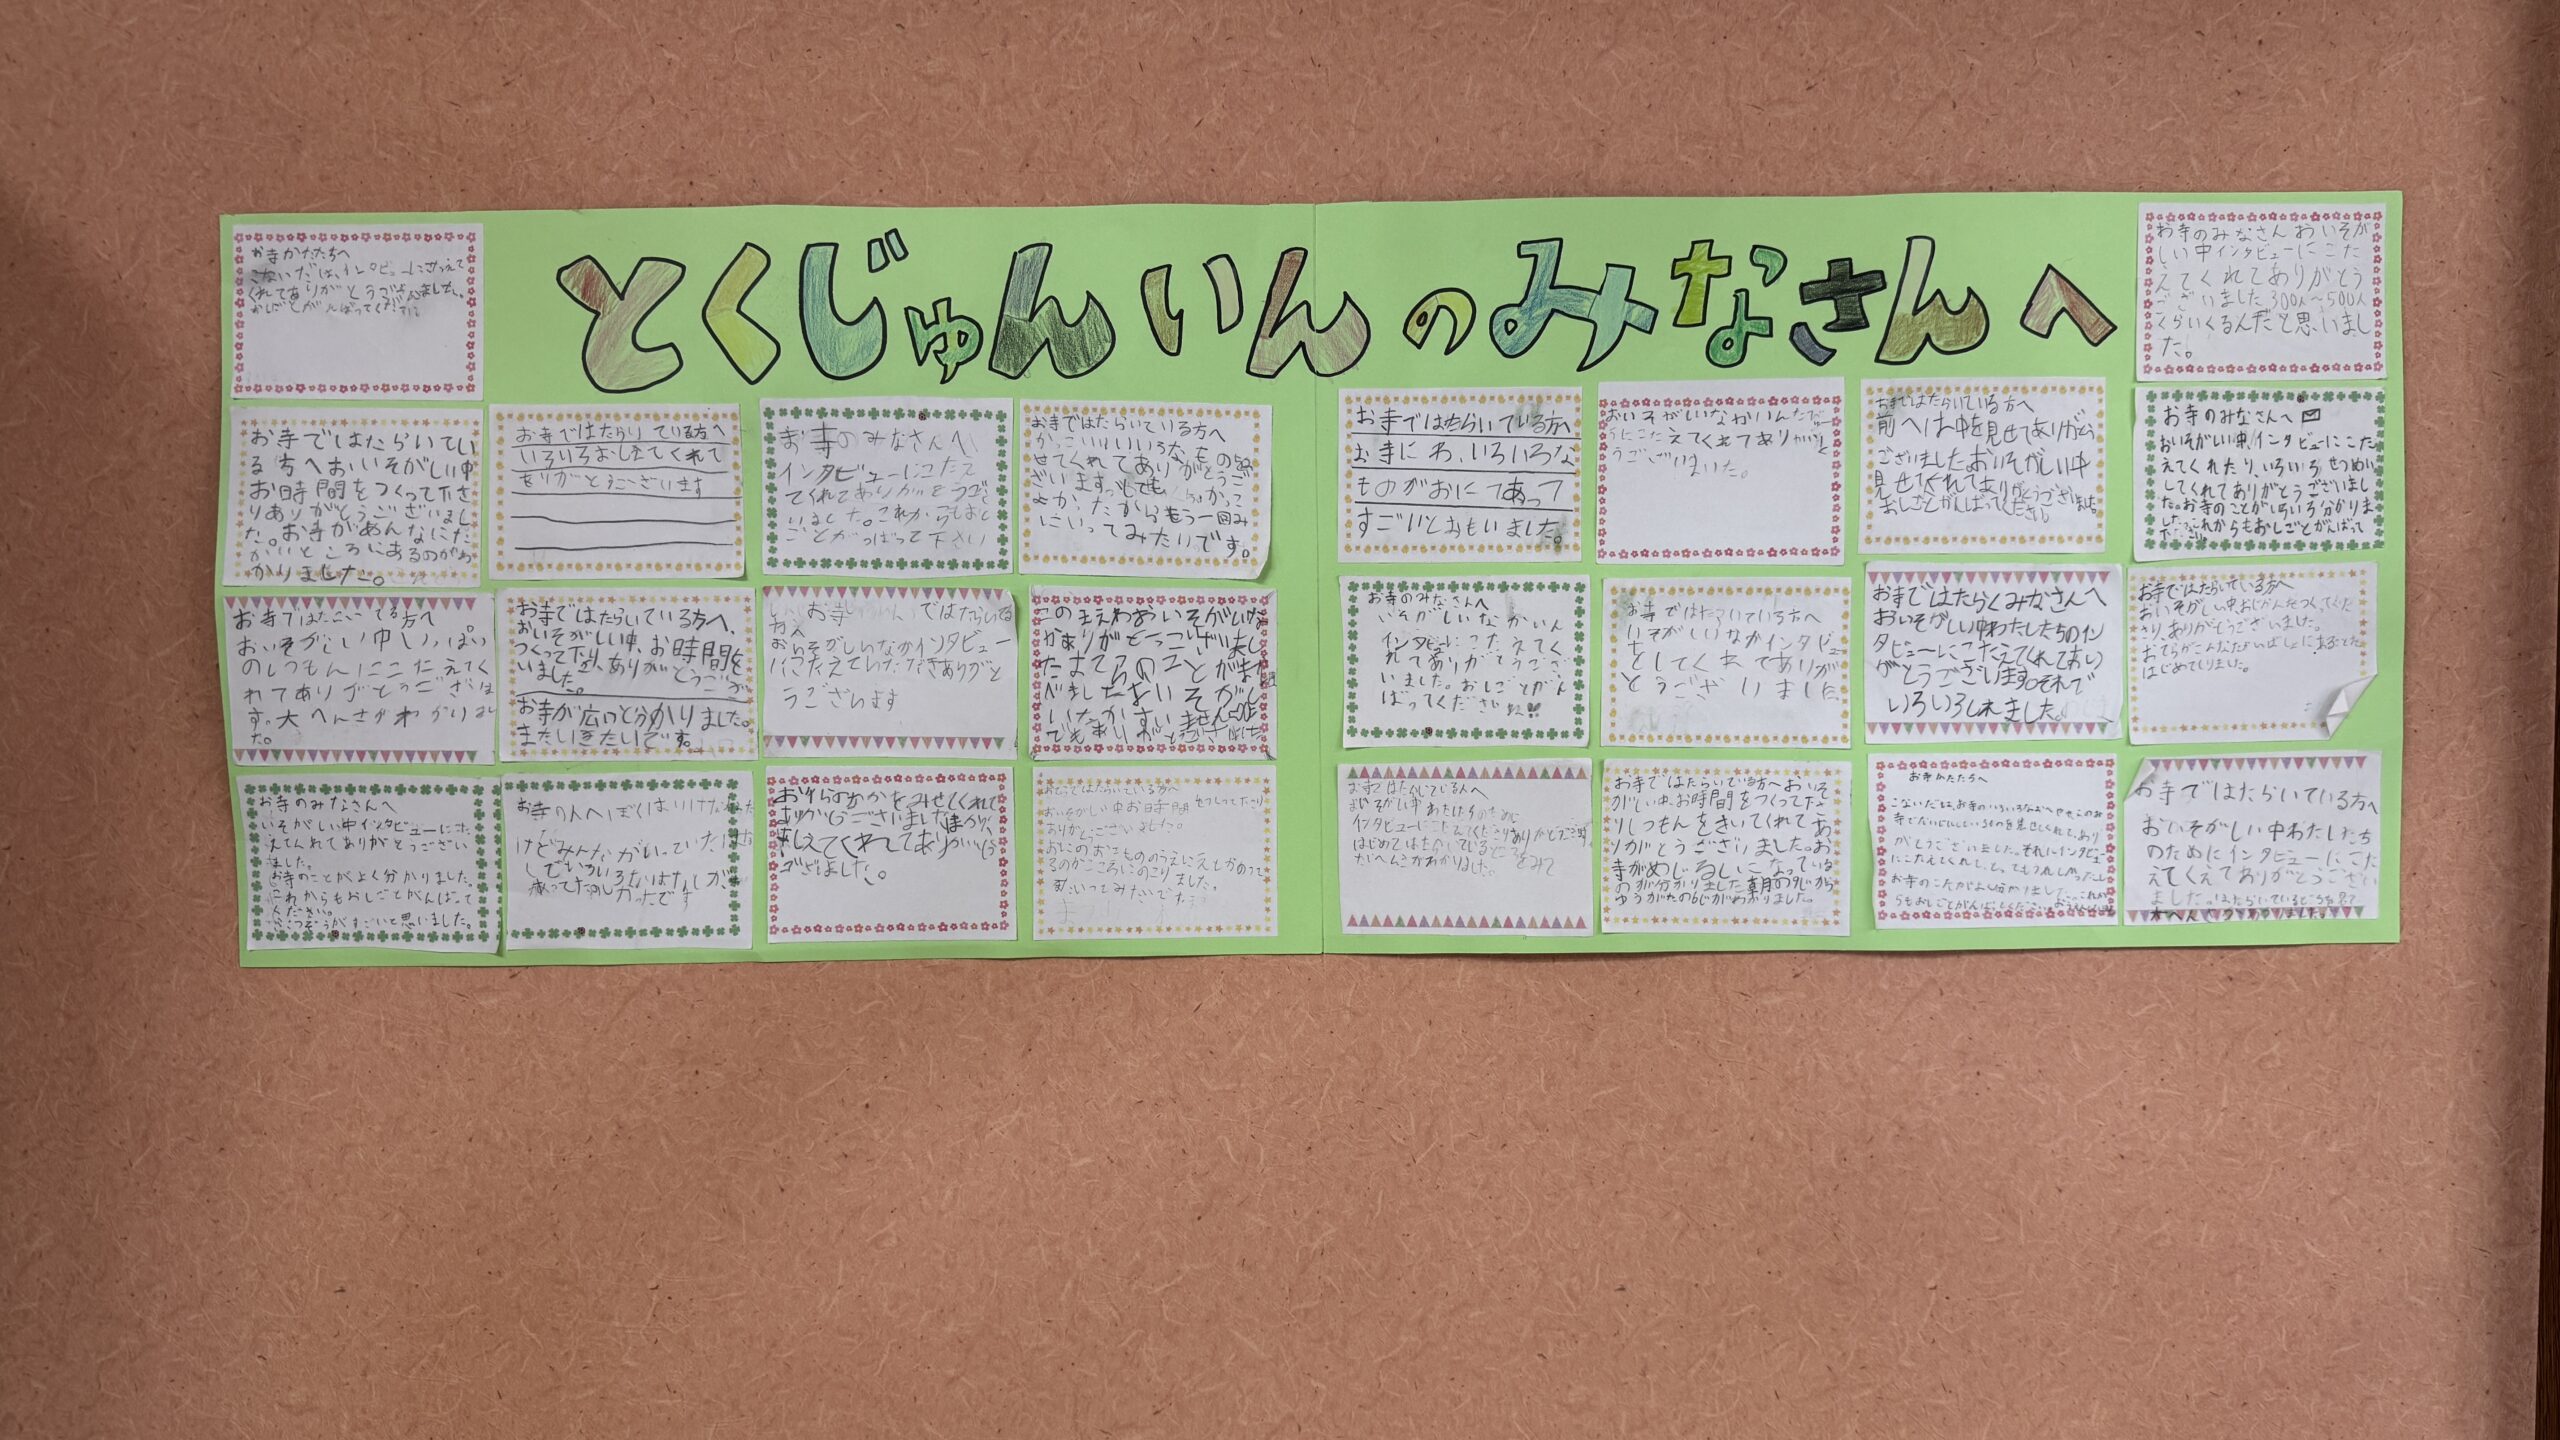 とくじゅんいんのみなさんへ
お寺かたたちへ
こないだは、インタビューにこたえて
くれてありがとうございました。
おしごとがんばってください
お寺のみなさんおいそが
しい中インタビューにこた
えてくれてありがとう
ございました300人〜500人
くらいくるんだと思いまし
た。
お寺ではたらいてい
る方へおいそがしい中
お時間をつくって下さ
りありがとうございまし
た。お寺があんなにた
かいところにあるのがわ
かりました。
お寺ではたらいている方へ
いろいろおしえてくれて
ありがとうございます
お寺のみなさんへ
インタビューにこたえ
てくれてありがとうござ
いました。これからもおし
ごとがんばって下さい
お寺ではたらいている方へ
かっこいいいろいろなものを見
せてくれてありがとうご
ざいます。しても かっこ
よかったからもう一回み
にいってみたいです。
お寺ではたらいている方へ
お寺にわ、いろいろな
ものがおにてあって
すごいとおもいました。
おいそがしいなかいんたびゅー
うにこたえてくれてありがと
うございました。
お寺ではたらいている方へ
前へは中を見せてありがとう
ございましたおいそがしい中
見せてくれてありがとうございました
おしごとがんばってください。
お寺のみなさんへ
おいそがしい中、インタビューにこた
えてくれたり、いろいろせつめい
してくれてありがとうございまし
た。お寺のことがいろいろ分かりま
した。これからもおしごとがんばって
下さい。
お寺ではたらいてる方へ
おいそがしい中しっぱい
のしつもんにこたえてく
れてありがとうございま
す。大へんさがわかりまし
た。
お寺ではたらいている方へ、
おいそがしい中、お時間を
つくって下さり、ありがとうござ
いました。
お寺が広いと分かりました。
またいきたいです。
お寺 ではたらいてる
方へ
おいそがしいなかインタビュー
にこたえていただきありがと
うございます
このまえわおいそがしいな
かありがとうございまし
たおてらのことがま
べましたおいそがし
い
でもありがとうございました
お寺のみなさんへ
いそがしいなかいん
インタビューにこたえてく
れてありがとうござ
いました。おしごとがん
ばってください!!
お寺ではたらいている方へ
いそがしいなかインタビュー
をしてくれてありが
とうございました
お寺ではたらくみなさんへ
おいそがしい中わたしたちのイン
タビューにこたえてくれてあり
がとうございます。それで
いろいろしれました。
お寺ではたらいている方へ
おいそがしい中おじかんをつくってくだ
さり、ありがとうございました。
おてらがこんなたかいばしょにあることを
はじめてしりました。
お寺のみなさんへ
いそがしい中インタビューにこた
えてくれてありがとうござい
ました。
お寺のことがよく分かりました。
これからもおしごとがんばって
ください。
ごこつどうがすごいと思いました。
お寺の人へぼくはいけなかった
けどみんながいっていたはなし
でいろいろなはなしが
あってたのしかったです
おてらのなかをみせてくれて
ありがとうございました
おしえてくれてありがとう
ございました。
おてらではたらいている方へ
おいそがしい中お時間をつくってくださり
ありがとうございました。
おにのおこもののうえに
るのがこころにのこりました。
またいってみたいです。
お寺ではたらいている人へ
おいそがしい中わたしたちのために
インタビューにこたえてくださりありがとうございます
はじめてはたらいているところをみて
たいへんさがわかりました。
お寺ではたらいている方へおいそ
がしい中、お時間をつくって下さ
りしつもんをきいてくれてあ
りがとうございました。お
寺がめじるしになっている
のが分かりました朝の6じから
ゆうがたの6じがわかりました。
お寺かたたちへ
こないだは、お寺のいろいろなおへややこのお
寺でだいじにしているものを見せてくれて、あり
がとうございました。それにインタビュー
にこたえてくれて、とってもうれしかったし
お寺のことがよく分かりました。これか
らもおしごとがんばってください。
お寺ではたらいている方へ
おいそがしい中わたしたち
のためにインタビューにこた
えてくれてありがとうござい
ました。はたらいているところを見て
大へんさがわかりました。